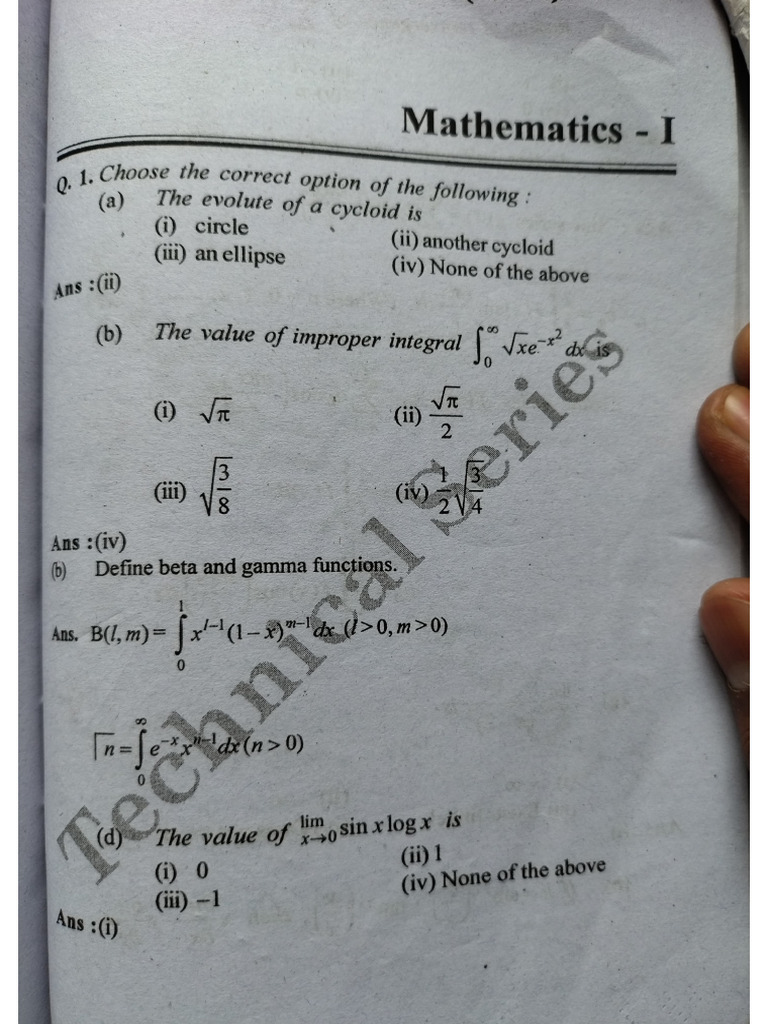 Mathematics - I
Q. 1. Choose the correct option of the following :
(a) The evolute of a cycloid is
(i) circle (ii) another cycloid
(iii) an ellipse (iv) None of the above
Ans :(ii)
(b) The value of improper integral ∫₀^∞ √x e^{-x²} dx is
(i) √π (ii) √π/2
(iii) √(3/8) (iv) 1/2 √(3/4)
Ans :(iv)
(b) Define beta and gamma functions.
Ans. B(l, m) = ∫₀¹ x^{l–1} (1 – x)^{m–1} dx (l > 0, m > 0)
Γn = ∫₀^∞ e^{-x} x^{n–1} dx (n > 0)
(d) The value of lim x→0 sin x log x is
(i) 0 (ii) 1
(iii) –1 (iv) None of the above
Ans :(i)
Technical Series